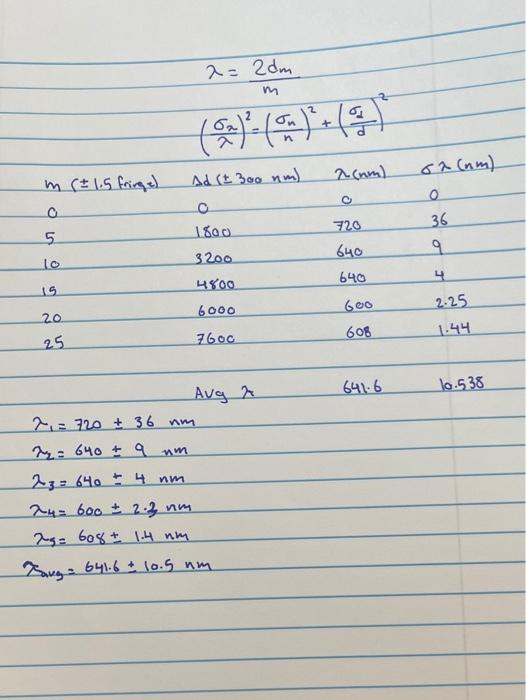 λ = 2dm/m
(σλ/λ)² = (σn/n)² + (σd/d)²
m (± 1.5 fringe) Δd (± 300 nm) λ (nm) σλ (nm)
0 0 0 0
5 1800 720 36
10 3200 640 9
15 4800 640 4
20 6000 600 2.25
25 7600 608 1.44
Avg λ 641.6 10.538
λ1 = 720 ± 36 nm
λ2 = 640 ± 9 nm
λ3 = 640 ± 4 nm
λ4 = 600 ± 2.3 nm
λ5 = 608 ± 1.4 nm
λavg = 641.6 ± 10.5 nm